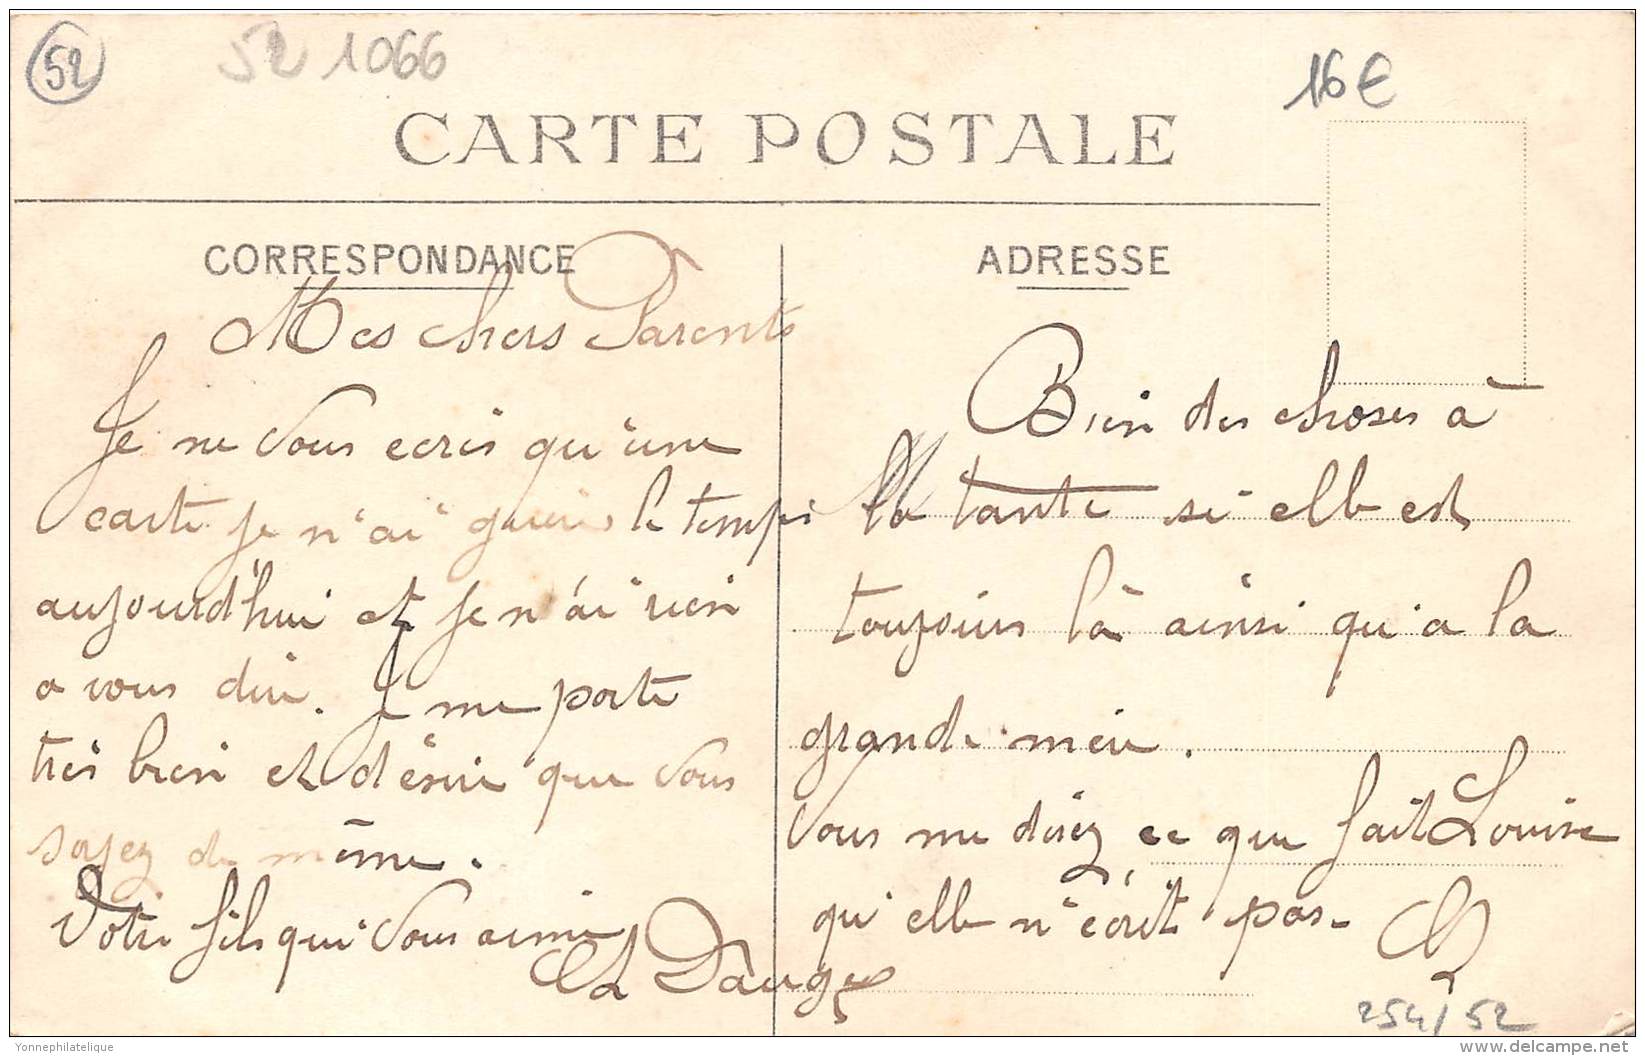 52
52 1066
16€
CARTE POSTALE
CORRESPONDANCE
Mes chers Parents
Je ne vous ecris qu'une
carte je n'ai guère le temps
aujourd'hui et je n'ai rien
a vous dire. Je me porte
très bien et désire que vous
soyez de même.
Votre fils qui vous aime
Dauge
ADRESSE
Bien des choses à
la tante si elle est
toujours là ainsi qu'a la
grande mère.
Vous me direz ce que fait Louise
qu'elle n'écrit pas.
254/52
Yonnephilatelique
delcampe.net